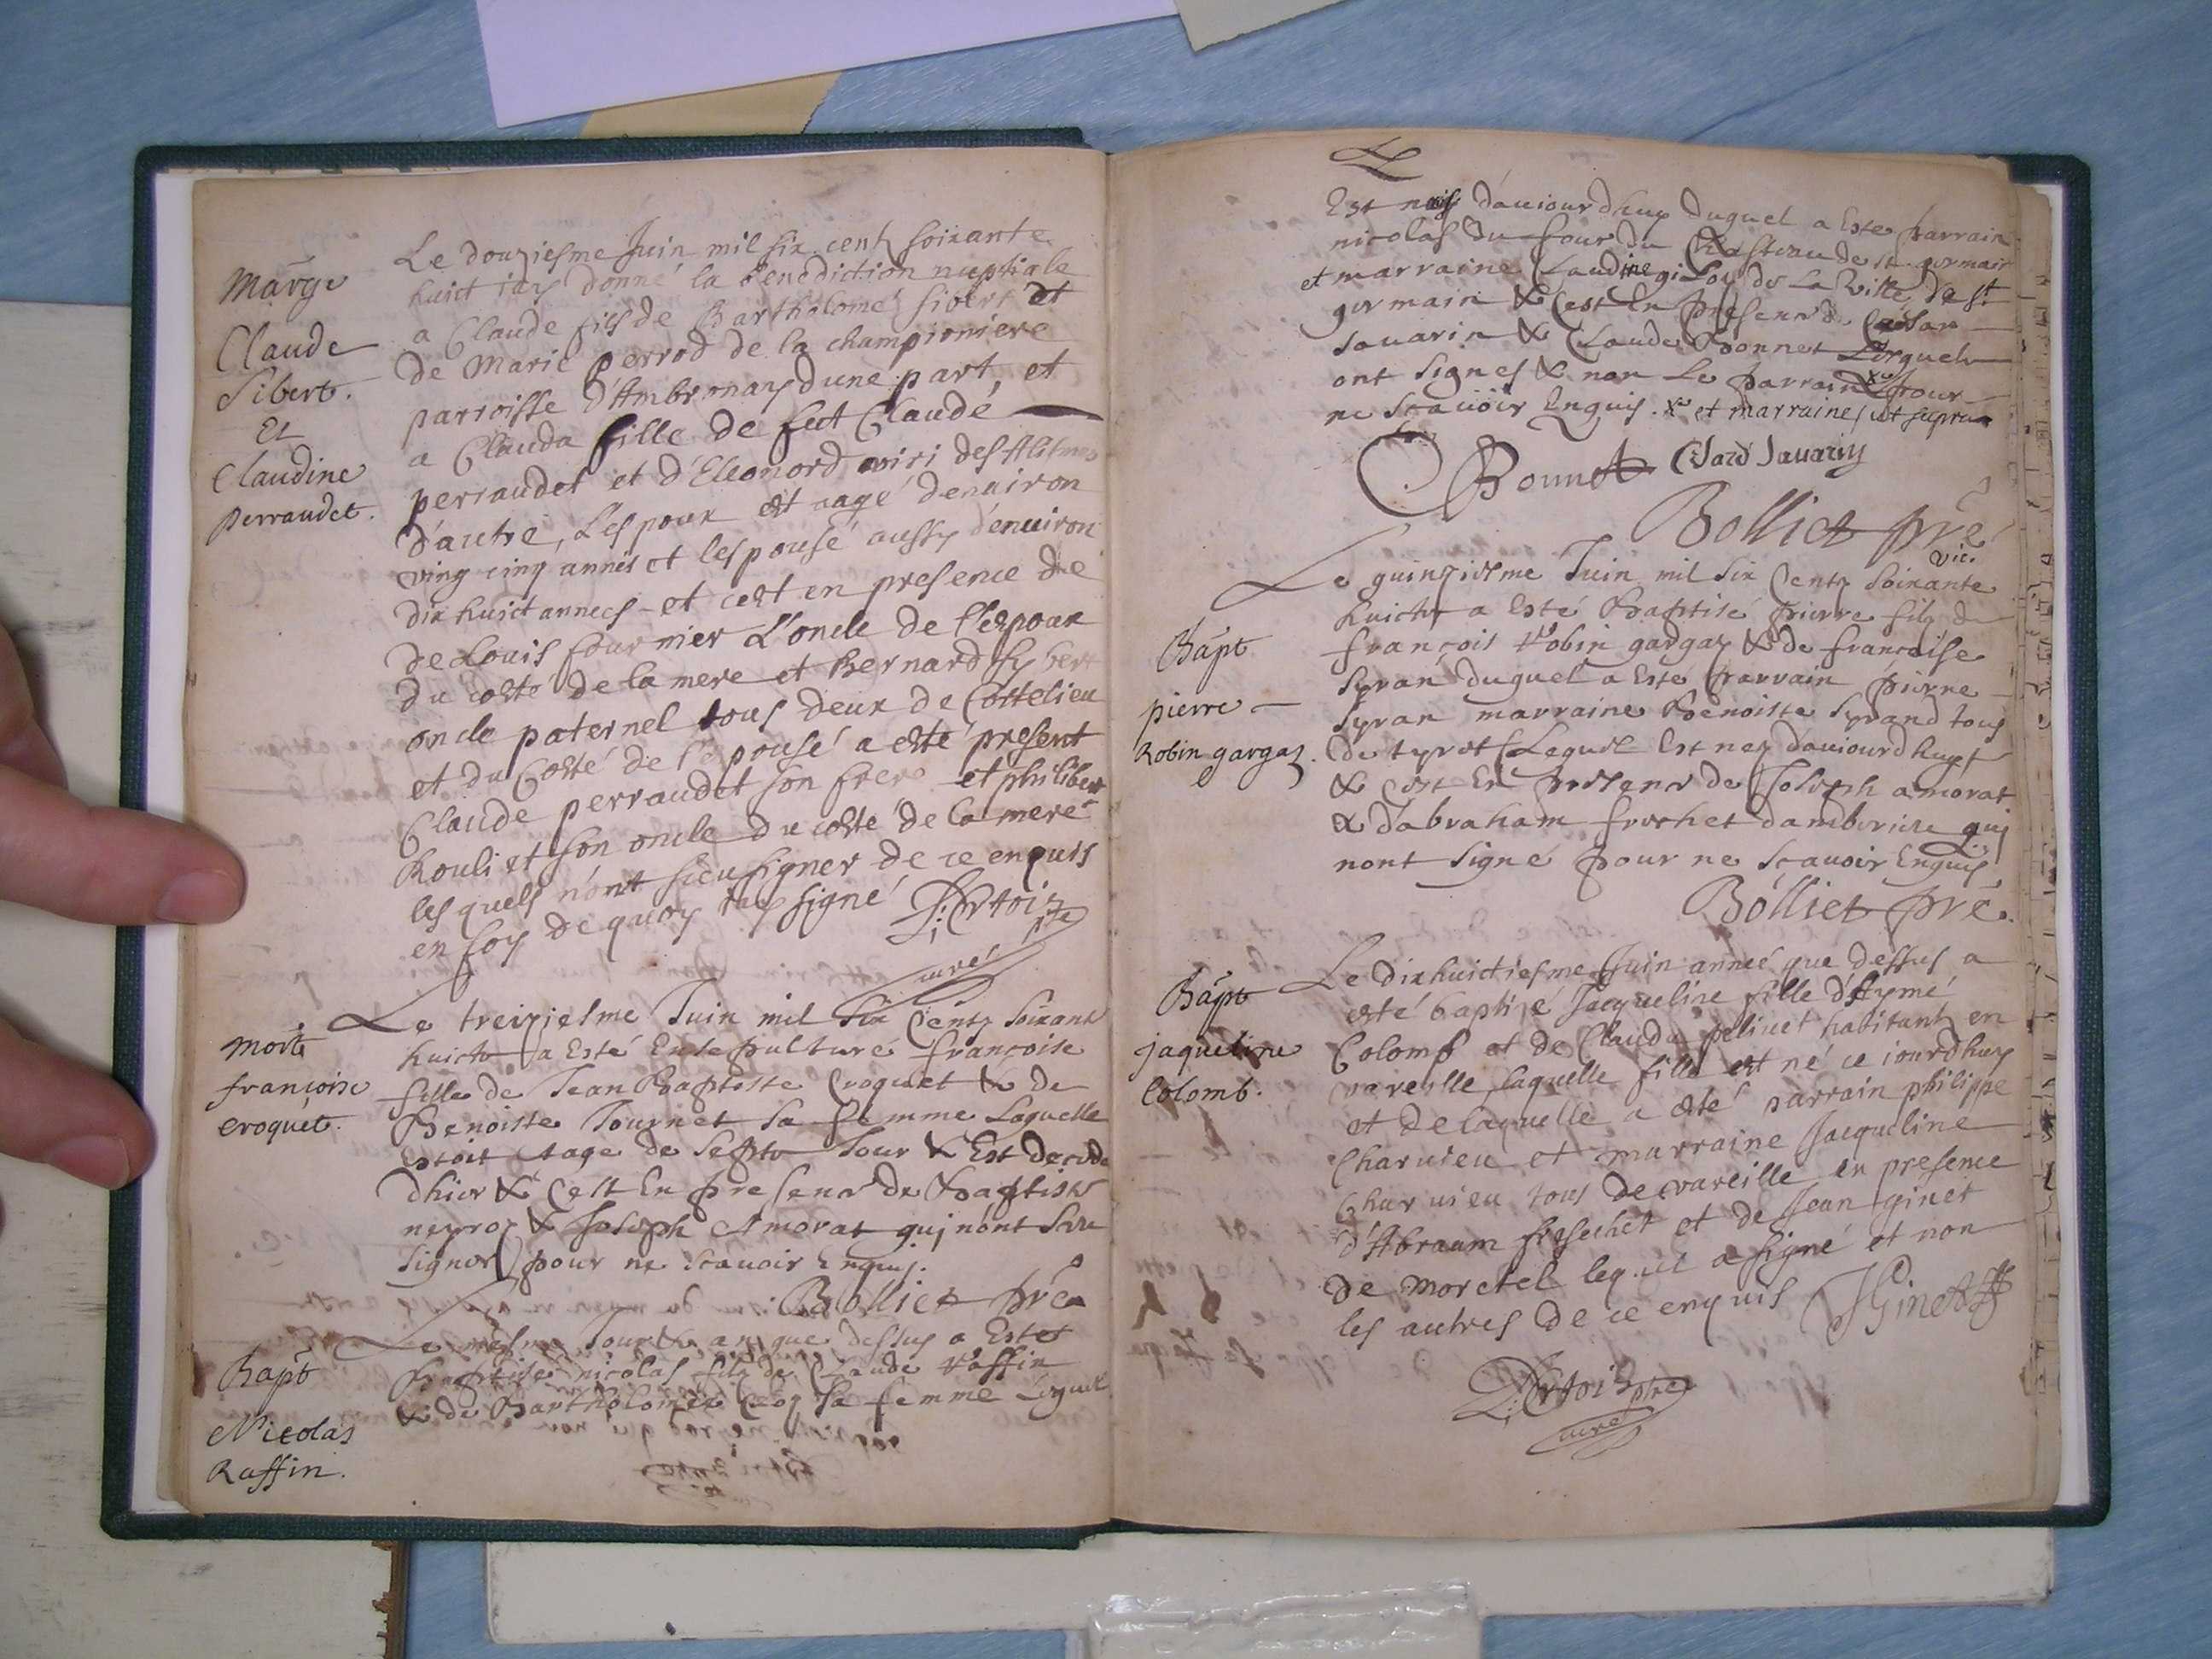 Mariage
Claude
Sibert.
Et
Claudine
perraudet.
Le douziesme Juin mil six cents soixante
huict iay donné la benediction nuptiale
a Claude fils de Bartholomé sibert et
de Marie perrod de la championiere
parroisse d'Ambronay dune part, et
a Clauda fille de feu Claude
perraudet et d'Eleonord
d'autre, L'espoux est aagé denuiron
ving cinq années et lespouse aussy d'enuiron
dix huict annees et cest en presence de
de Louis fournier L'oncle de l'espoux
du costé de la mere et Bernard sybert
oncle paternel tous deux de Cottelieu
et du Costé de l'epouse a esté present
Claude perraudet son frere et philibert
Rouliet son oncle du costé de la mere
les quels n'ont sceu signer de ce enquis
en foy de quoy iay signé Dertoiz
ptre curé
mort
françoise
croquet.
Le treiziesme Juin mil Six Cents Soixante
huict a Esté Ensepulturé françoise
fille de Jean Baptiste Croquet & de
Benoiste Tournet Sa femme Laquelle
estoit aagé de Sept Jour & Est decede
dhier & Cest En presence de Baptiste
neyroz & Joseph Amorat quj nont Sceu
Signer pour ne Scauoir Enquis.
Bolliet pre
Bapt
Nicolas
Raffin.
Le mesme Jour & an que dessus a Estet
Baptisé nicolas filz de Claude raffin
& de Bartholomie Sa femme Lequel
Est nay dauiourdhuy duquel a Este parrain
nicolas du four du Chasteau de st germain
et marraine Claudine de La Ville de st
germain & Cest En presence de
Sauarin & Claude Bonnet Lesquels
ont Signes & non Le parrain pour
ne Scauoir Enquis. et marraine ut supra
C Bonnet Sauarin
Bolliet pre
vic.
Bapt
pierre
Robin gargaz.
Le quinziesme Juin mil Six Cents Soixante
huict a Esté Baptisé pierre filz de
françois robin gargaz & de francoise
Syran duquel a Esté parrain pierre
Syran marraine Benoiste Syrand tous
de tyret Lequel Est nay dauiourdhuy
& cest En presence de Joseph amorat
& dabraham frechet quj
nont Signé pour ne Scauoir Enquis
Bolliet pre.
Bapt
jaqueline
Colomb.
Le dixhuictiesme Juin année que dessus a
esté baptisé Jacqueline fille d'Aymé
Colomb et de Clauda peliuet habitants en
vareille laquelle fille est né ce iourdhuy
et de laquelle a esté parrain philippe
Charuieu et marraine Jacqueline
Charuieu tous de vareille en presence
d'Abraam freschet et de Jean ginet
de morctel lequel a signé et non
les autres de ce enquis JGinet
Dertoiz ptre
curé